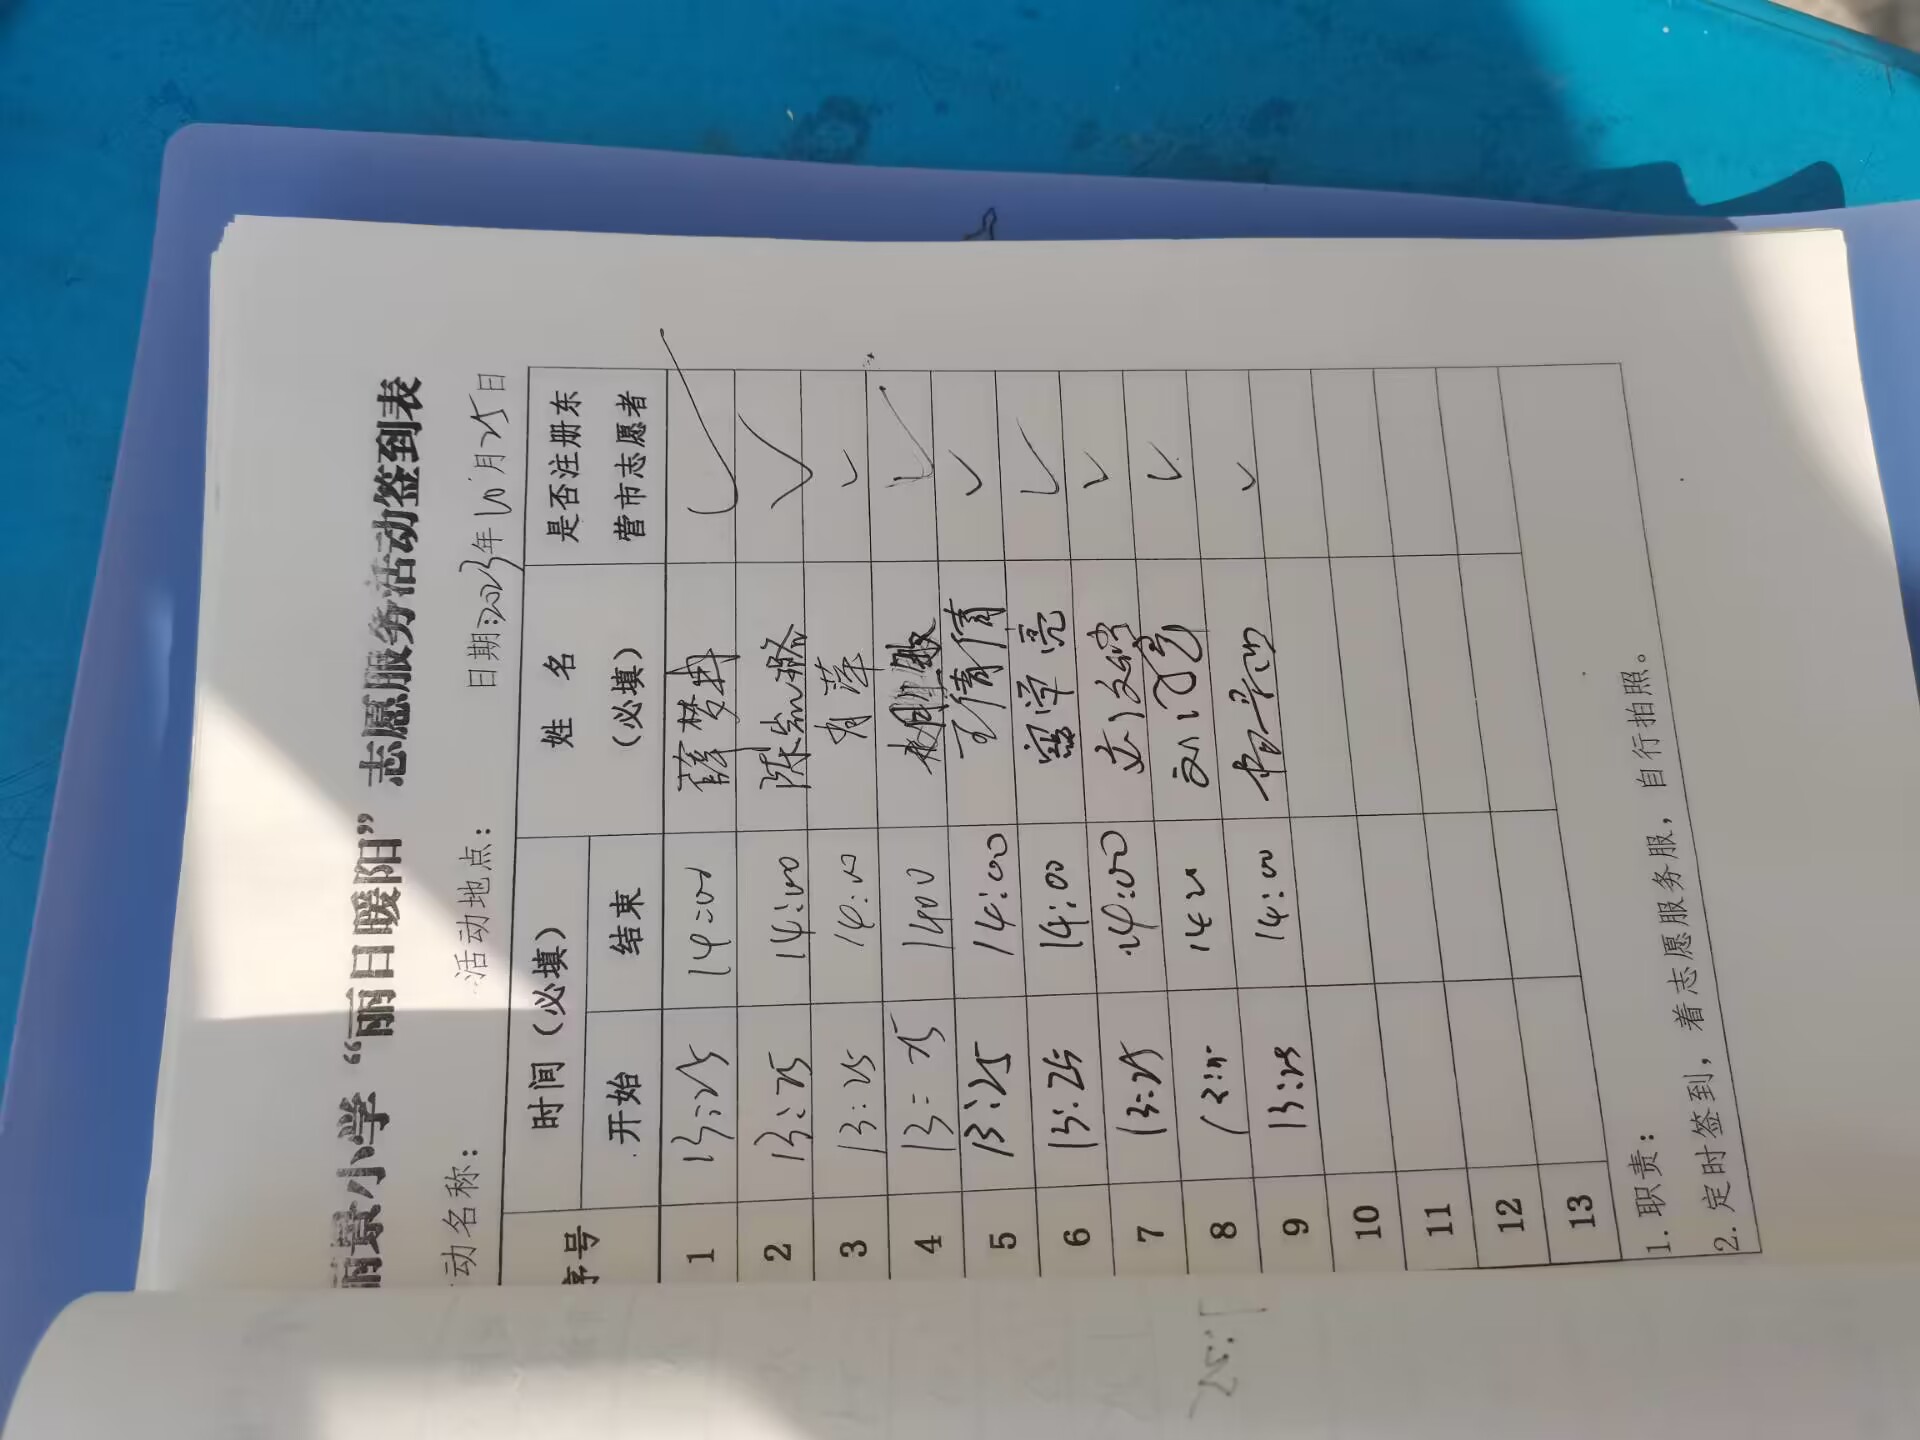 丽景小学“丽日暖阳”志愿服务活动签到表
动名称： 活动地点： 日期:2023年10月25日
序号 时间（必填） 姓名（必填） 是否注册东营市志愿者
开始 结束
1 13:25 14:00 薛梦冉 ✓
2 13:25 14:00 陈 ✓
3 13:25 14:00 肖萍 ✓
4 13:25 1400 敏 ✓
5 13:25 14:00 王倩倩 ✓
6 13:25 14:00 学亮 ✓
7 13:25 14:00 ✓
8 ✓
9 13:25 14:00 ✓
10
11
12
13
1.职责：
2.定时签到，着志愿服务服，自行拍照。